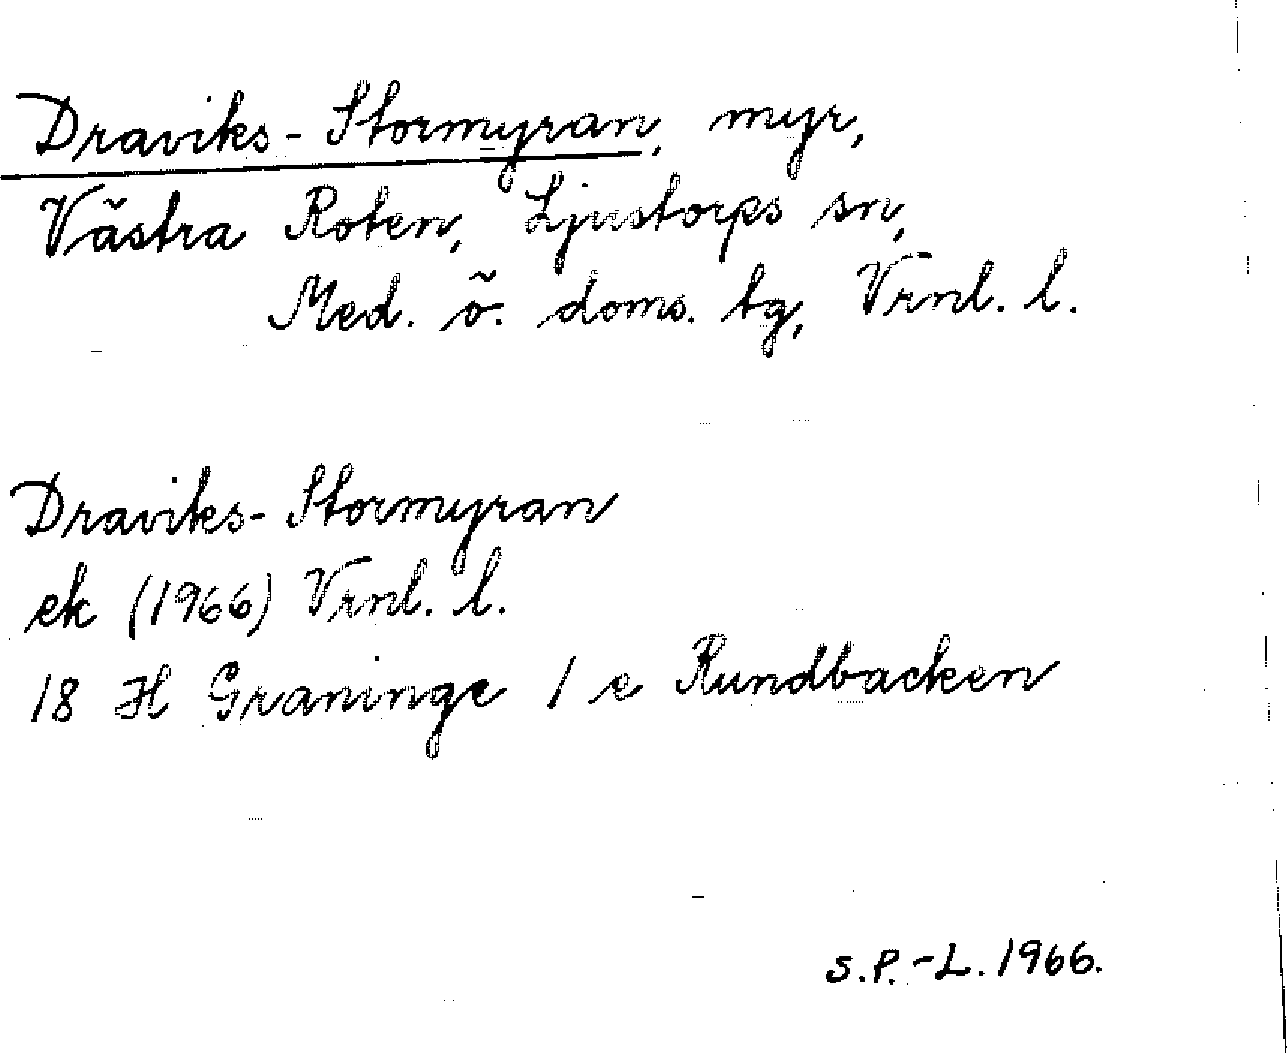 Draviks-Stormyran, myr,
Västra Roten, Ljustorps sn,
Med. ö. doms. tg, Vrnl. l.
Draviks-Stormyran
ek (1966) Vrnl. l.
18 H Graninge 1 e Rundbacken
S.P.-L. 1966.